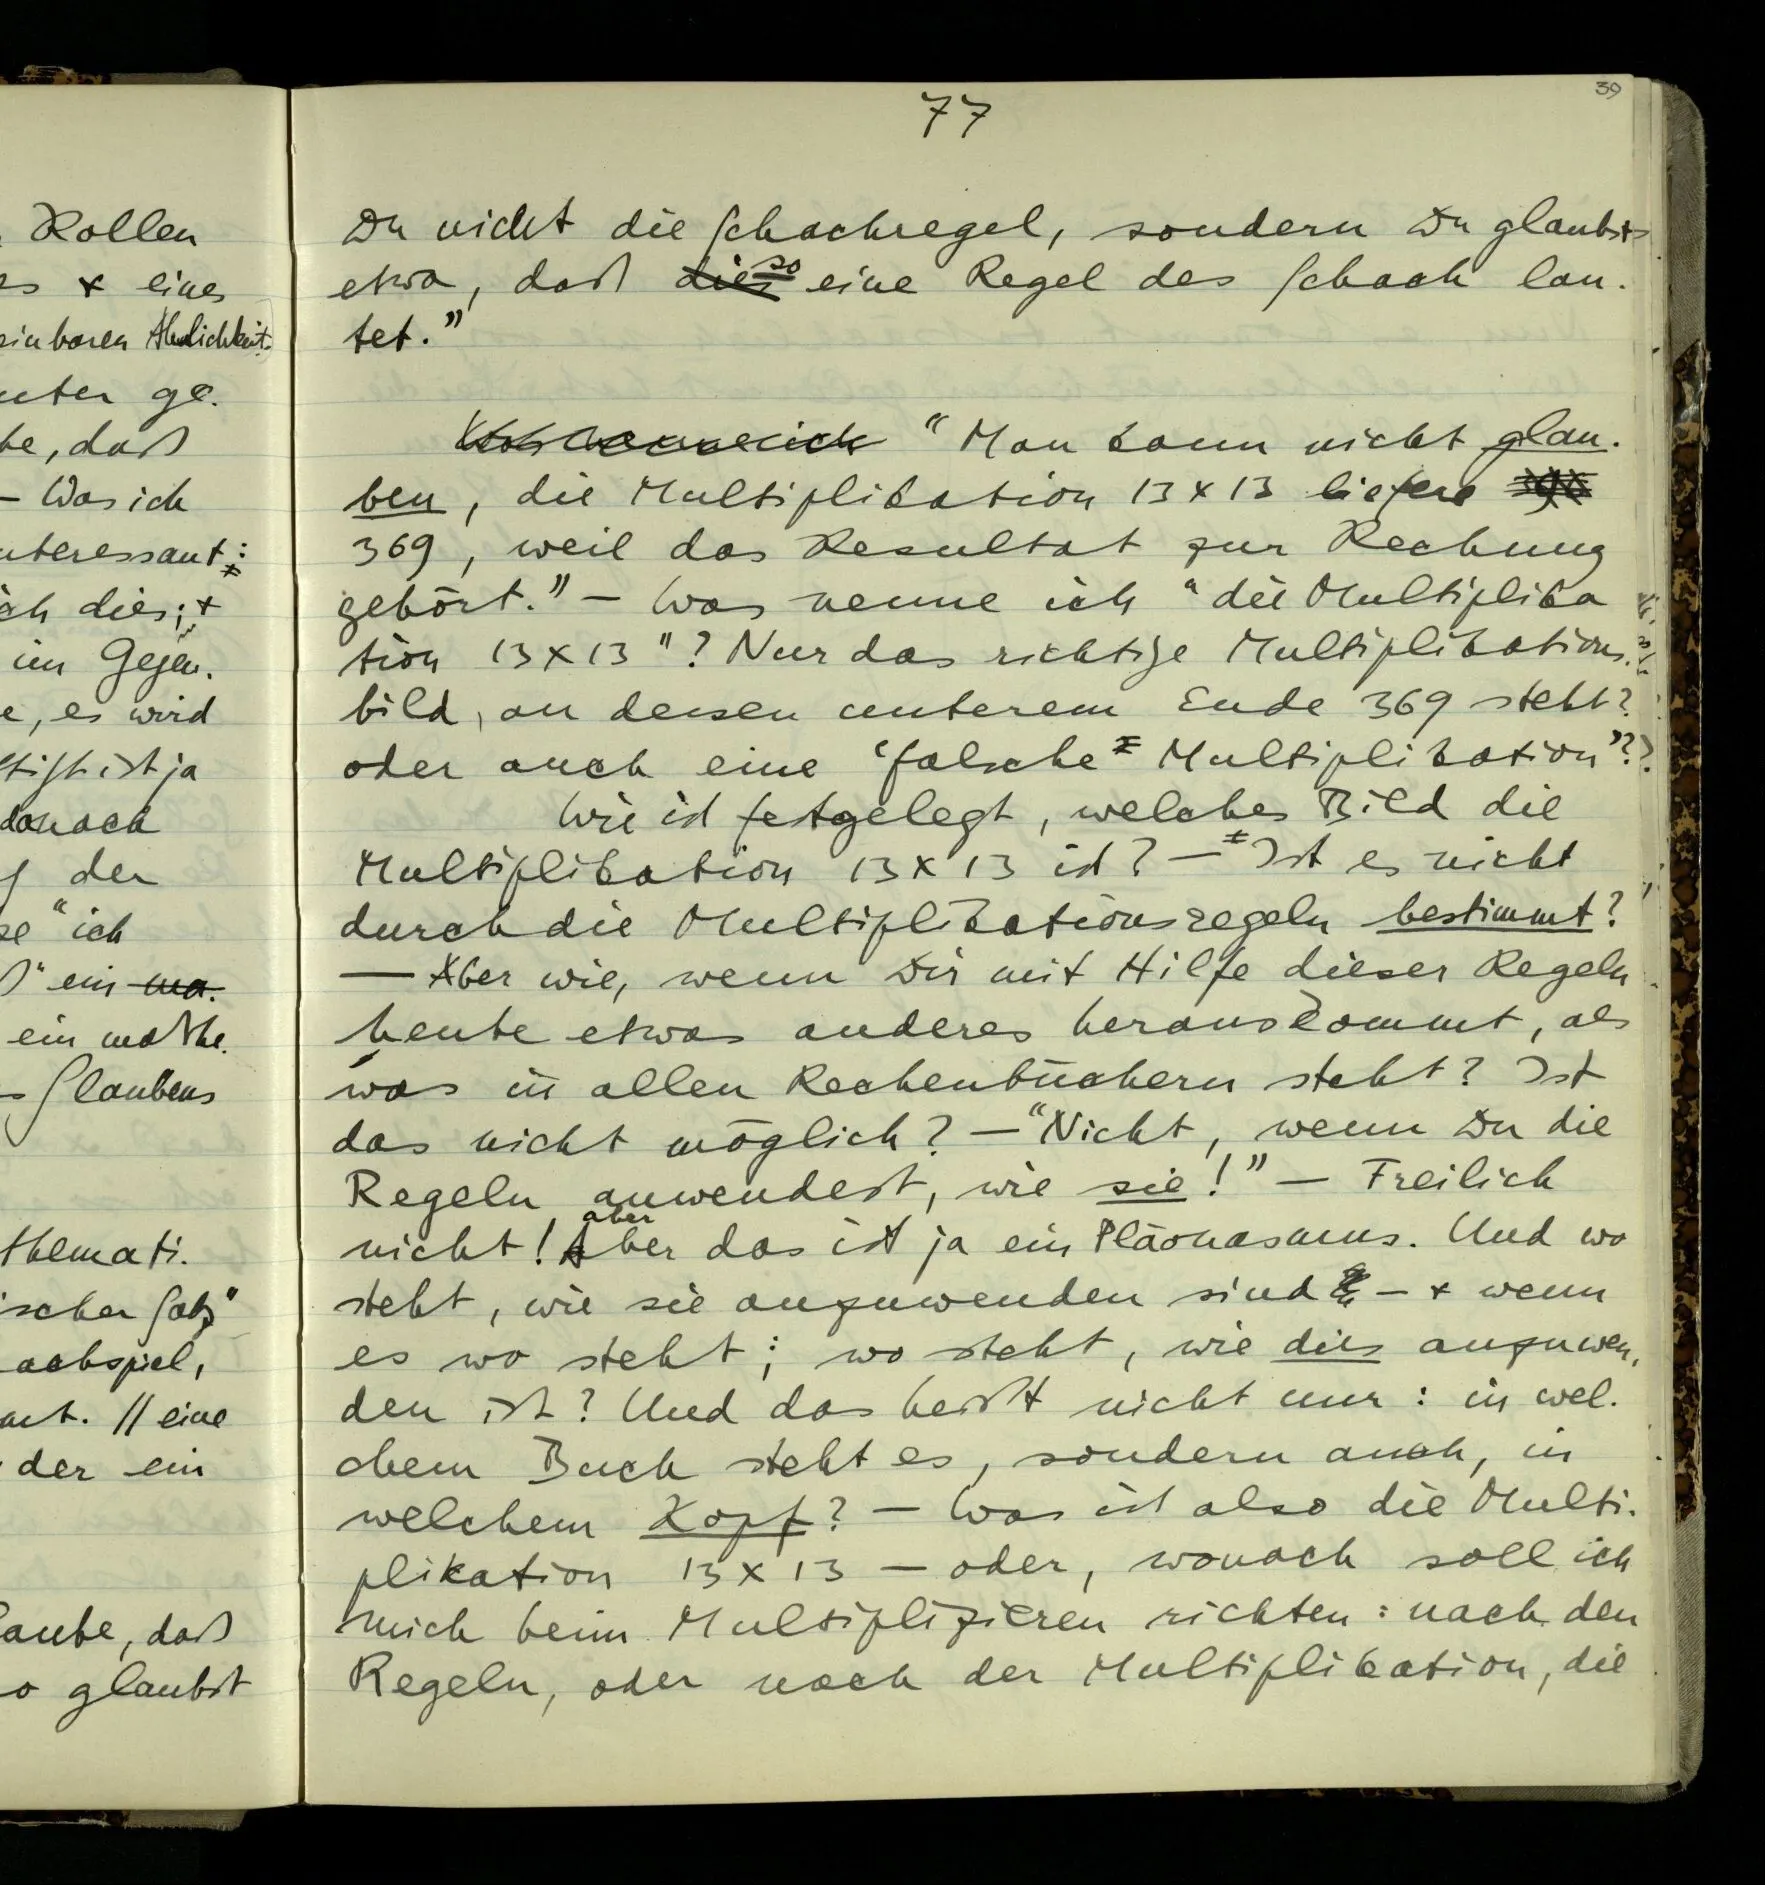 39
77
n Rollen
es + eines
einbaren Ähnlichkeit.
unter ge-
be, daß
– Was ich
nteressant:
ich dies; +
im Gegen-
e, es wird
ist ja
danach
der
se "ich
ein ma-
ein mathe-
Glaubens
thematि-
ischer Satz"
achspiel,
mt. // eine
der ein
laube, daß
o glaubst
Du nicht die Schachregel, sondern Du glaubst
etwa, daß dies so eine Regel des Schach lau-
tet."
"Man kann nicht glau-
ben, die Multiplikation 13 x 13 liefere
369, weil das Resultat zur Rechnung
gehört." – Was nenne ich "die Multiplika
tion 13 x 13"? Nur das richtige Multiplikations-
bild, an dessen unterem Ende 369 steht?
oder auch eine 'falsche Multiplikation"?
Wie ist festgelegt, welches Bild die
Multiplikation 13 x 13 ist? – Ist es nicht
durch die Multiplikationsregeln bestimmt?
— Aber wie, wenn Dir mit Hilfe dieser Regeln
heute etwas anderes herauskommt, als
was in allen Rechenbüchern steht? Ist
das nicht möglich? – "Nicht, wenn Du die
Regeln anwendest, wie sie!" – Freilich
nicht! Aber aber das ist ja ein Pläonasmus. Und wo
steht, wie sie anzuwenden sind – + wenn
es wo steht; wo steht, wie dies anzuwen-
den ist? Und das heißt nicht nur: in wel-
chem Buch steht es, sondern auch, in
welchem Kopf? – Was ist also die Multi-
plikation 13 x 13 – oder, wonach soll ich
mich beim Multiplizieren richten: nach den
Regeln, oder nach der Multiplikation, die